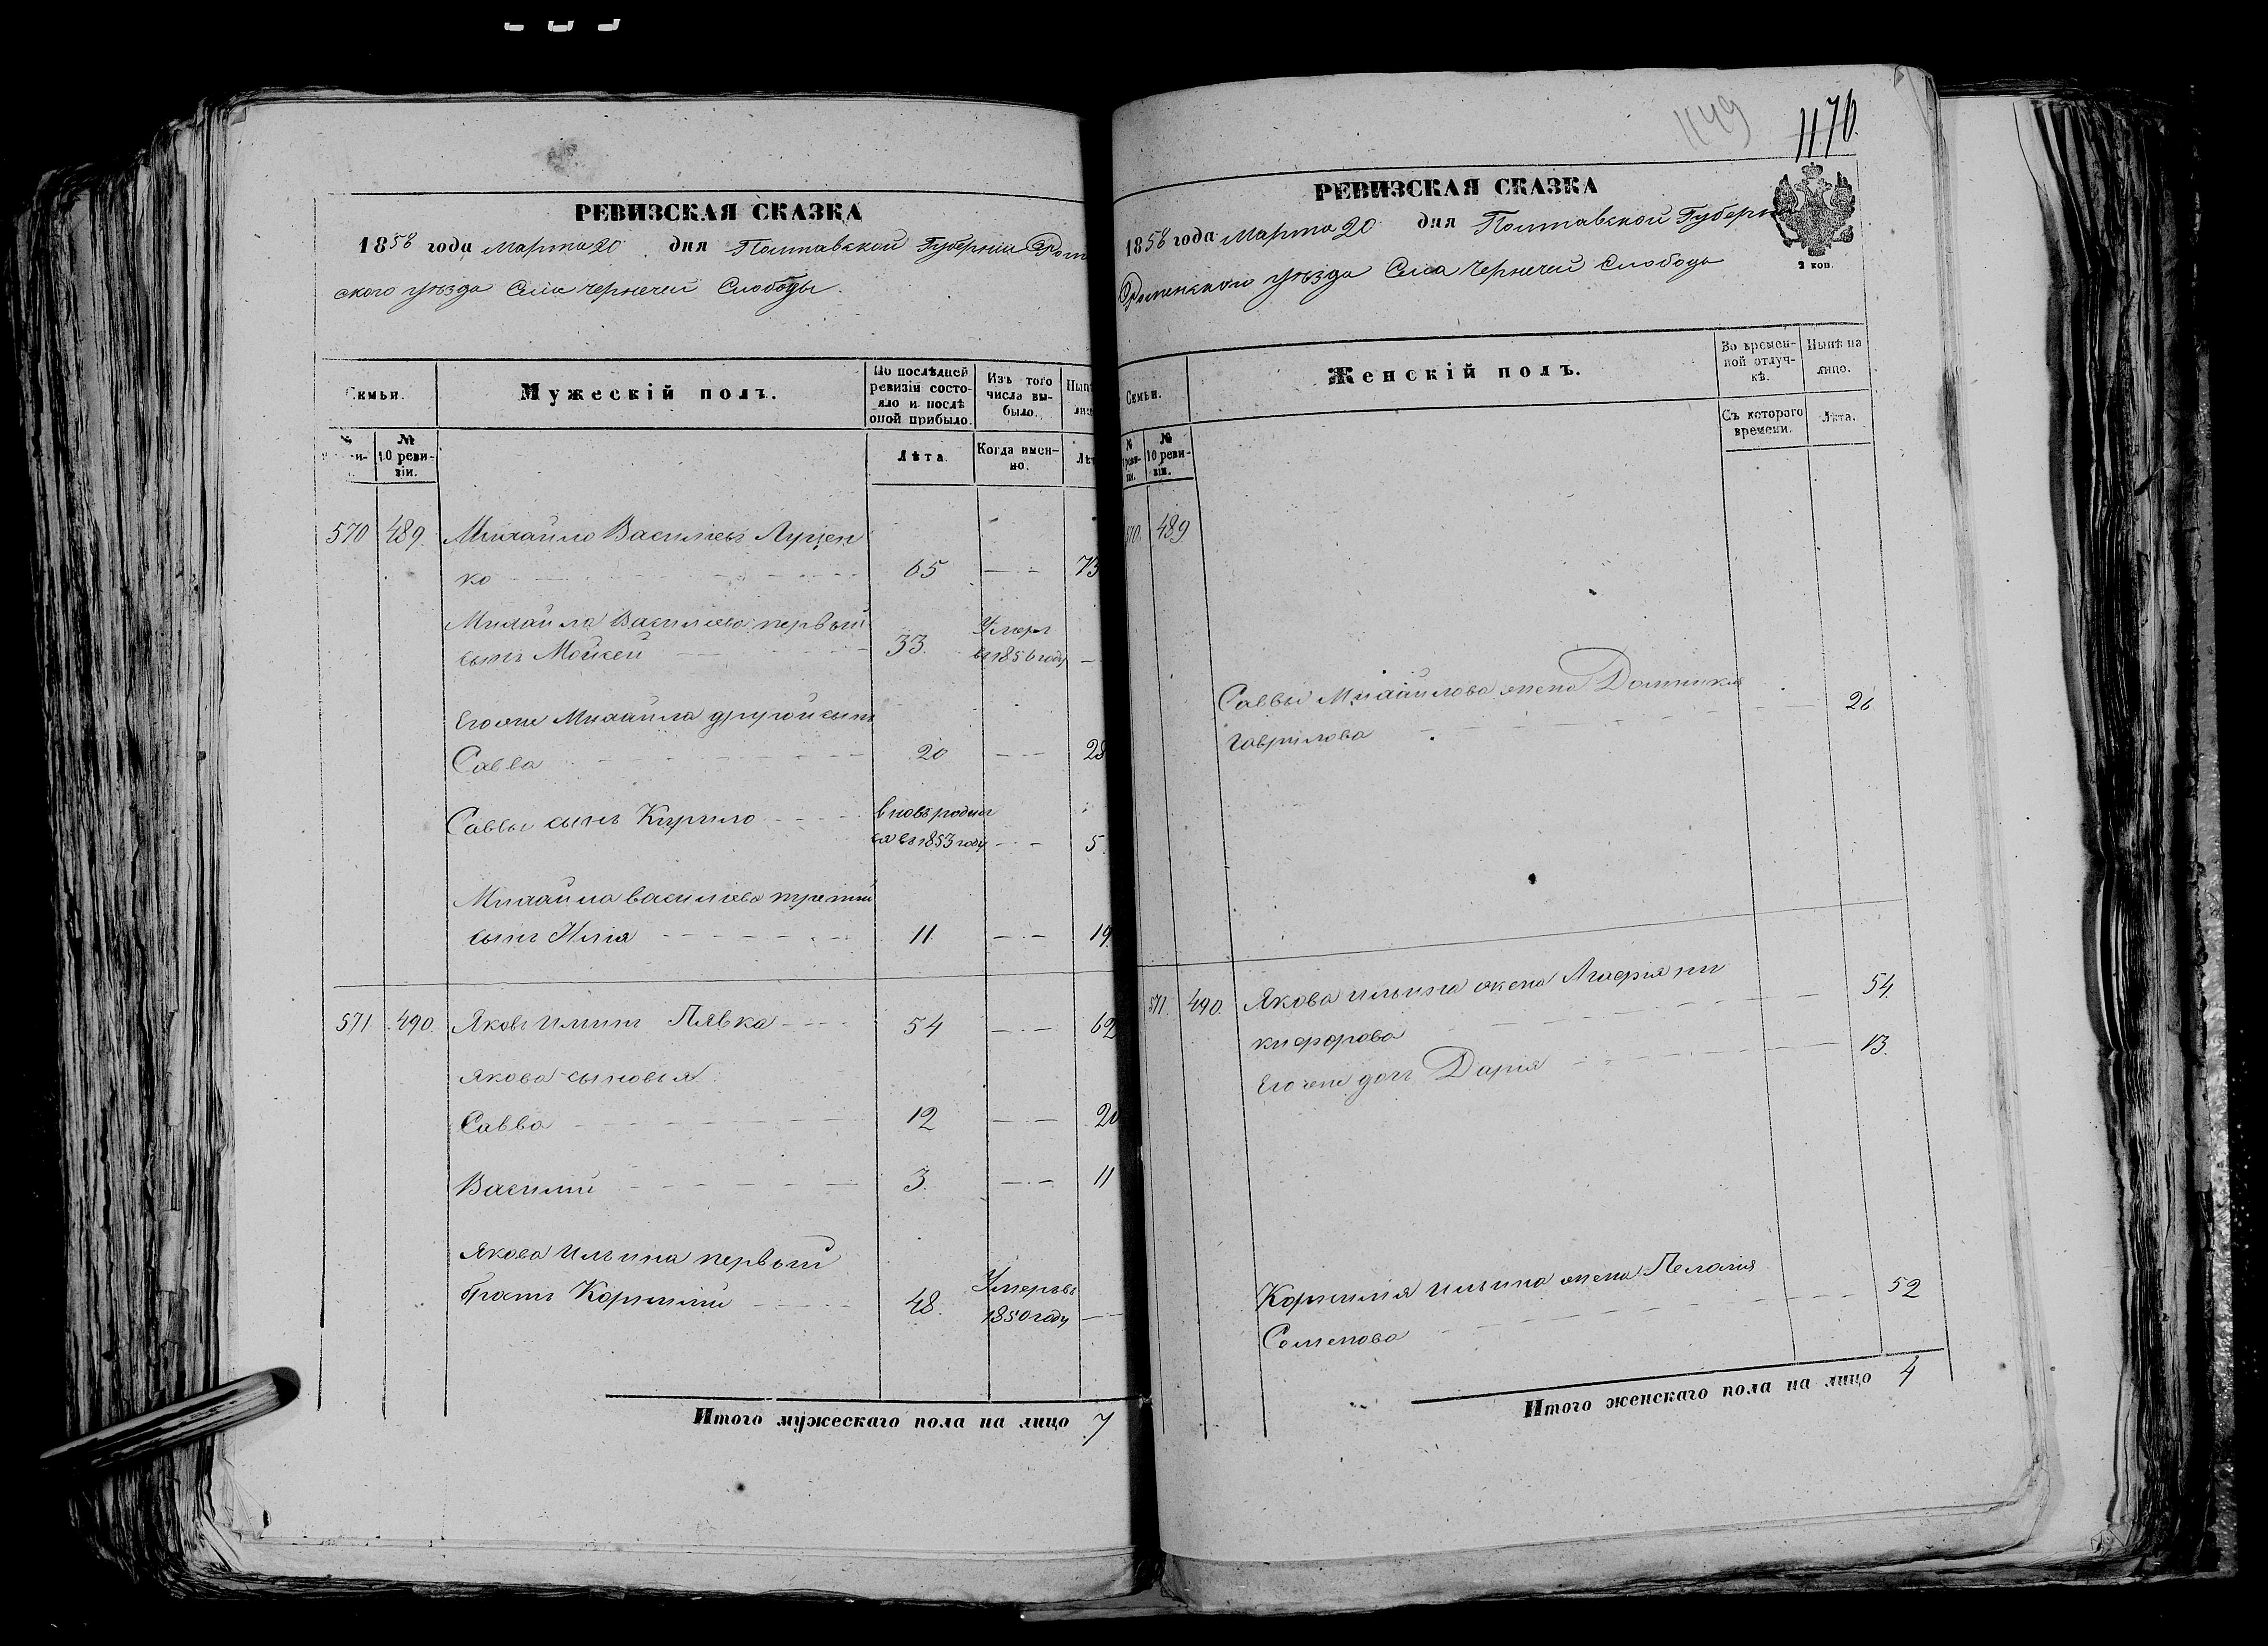 1149
1170.
РЕВИЗСКАЯ СКАЗКА
1858 года Марта 20 дня Полтавской Губерніи Ромен
ского уѣзда Села Чернечей Слободы.
Семьи.
Мужескій полъ.
По послѣдней
ревизіи состо-
яло и послѣ
оной прибыло.
Изъ того
числа вы-
было.
№
10 реви-
зіи.
Лѣта.
Когда имен-
но.
570 489. Михайло Васильевъ Луцен
ко 65 73
Михайла Васильева первый
сынъ Мойсей 33. Умеръ
въ 1856 году
Егоже Михайла другой сынъ
Савва 20 28
Саввы сынъ Кирило вновь родил
ся въ 1853 году 5.
Михайла Васильева третій
сынъ Илія 11. 19
571 490. Яковъ Ильинъ Пявка 54 62
Якова сыновья
Савва 12 20
Василий 3. 11
Якова Ильина первый
братъ Корнилий 48. Умеръ въ
1850 году
Итого мужескаго пола на лицо 7
РЕВИЗСКАЯ СКАЗКА
1858 года Марта 20 дня Полтавской Губерн
Роменского уѣзда Села Чернечей Слободы
2 коп.
Семьи.
Женскій полъ.
Во времен-
ной отлуч-
кѣ.
Нынѣ на
лицо.
Съ котораго
времени.
Лѣта.
№
10 реви-
зіи.
570. 489
Саввы Михайлова жена Домника
Гаврилова 26
571. 490. Якова Ильина жена Агафия Ни
кифорова 54.
Егоже дочь Дария 13.
Корнилия Ильина жена Пелагия
Семенова 52
Итого женскаго пола на лицо 4